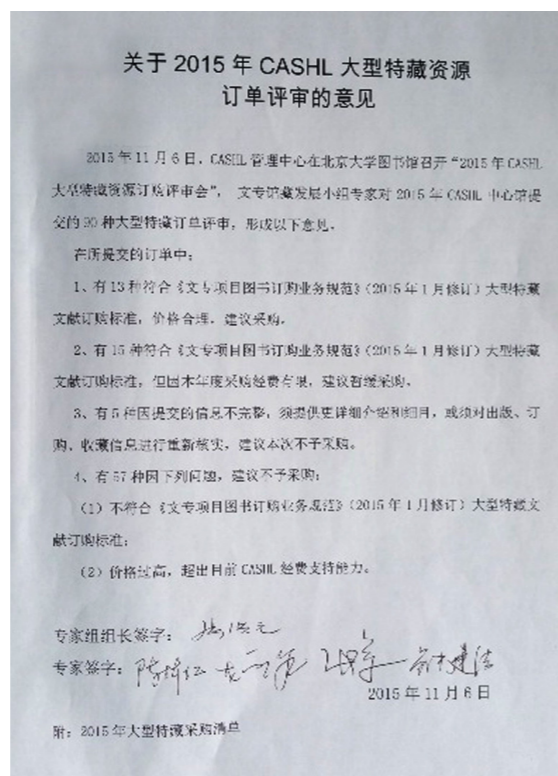 关于 2015 年 CASHL 大型特藏资源
订单评审的意见
2015 年 11 月 6 日，CASHL 管理中心在北京大学图书馆召开“2015 年 CASHL
大型特藏资源订购评审会”， 文专馆藏发展小组专家对 2015 年 CASHL 中心馆提
交的 90 种大型特藏订单评审，形成以下意见。
在所提交的订单中：
1、有 13 种符合《文专项目图书订购业务规范》（2015 年 1 月修订）大型特藏
文献订购标准，价格合理，建议采购。
2、有 15 种符合《文专项目图书订购业务规范》（2015 年 1 月修订）大型特藏
文献订购标准，但因本年度采购经费有限，建议暂缓采购。
3、有 5 种因提交的信息不完整，须提供更详细介绍和细目，或须对出版、订
购、收藏信息进行重新核实，建议本次不予采购。
4、有 57 种因下列问题，建议不予采购：
（1）不符合《文专项目图书订购业务规范》（2015 年 1 月修订）大型特藏文
献订购标准；
（2）价格过高，超出目前 CASHL 经费支持能力。
专家组组长签字：
专家签字：
2015 年 11 月 6 日
附：2015 年大型特藏采购清单